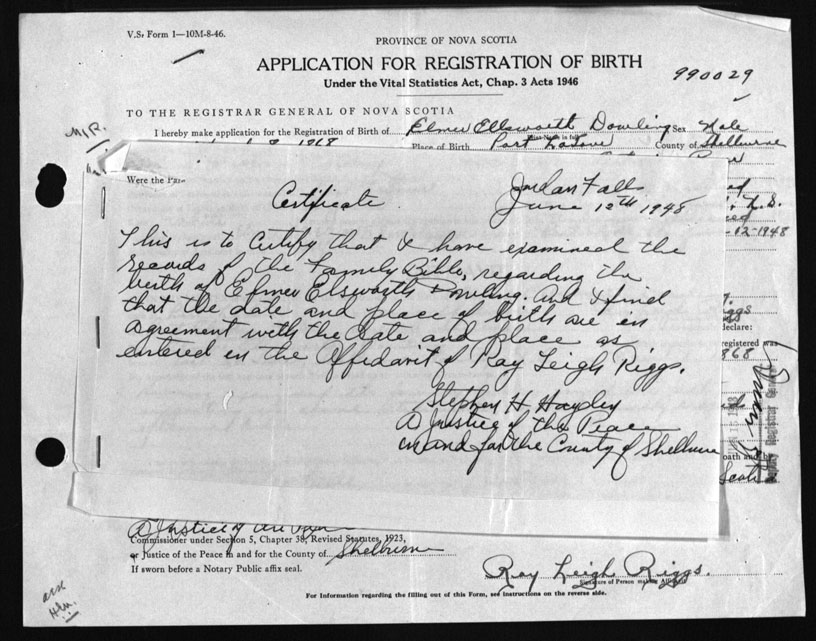 V.S. Form 1—10M-8-46.
PROVINCE OF NOVA SCOTIA
APPLICATION FOR REGISTRATION OF BIRTH
Under the Vital Statistics Act, Chap. 3 Acts 1946
990029
TO THE REGISTRAR GENERAL OF NOVA SCOTIA
I hereby make application for the Registration of Birth of Elmer Ellsworth Dowling Sex Male
1868 Place of Birth Port LaTour County of Shelburne
Were the
Certificate
Jordan Falls
June 12th 1948
This is to Certify that I have examined the
records of the Family Bible, regarding the
birth of Elmer Elsworth Dowling. And I find
that the date and place of birth are in
agreement with the date and place as
entered in the Affidavit of Ray Leigh Riggs.
Stephen H. Hayden
A Justice of the Peace
in and for the County of Shelburne
-1948
Riggs
declare:
registered was
868
oath and
A Justice of the
Commissioner under Section 5, Chapter 38, Revised Statutes, 1923,
or Justice of the Peace in and for the County of Shelburne
If sworn before a Notary Public affix seal.
Ray Leigh Riggs.
Signature of Person making Affidavit
For Information regarding the filling out of this Form, see instructions on the reverse side.